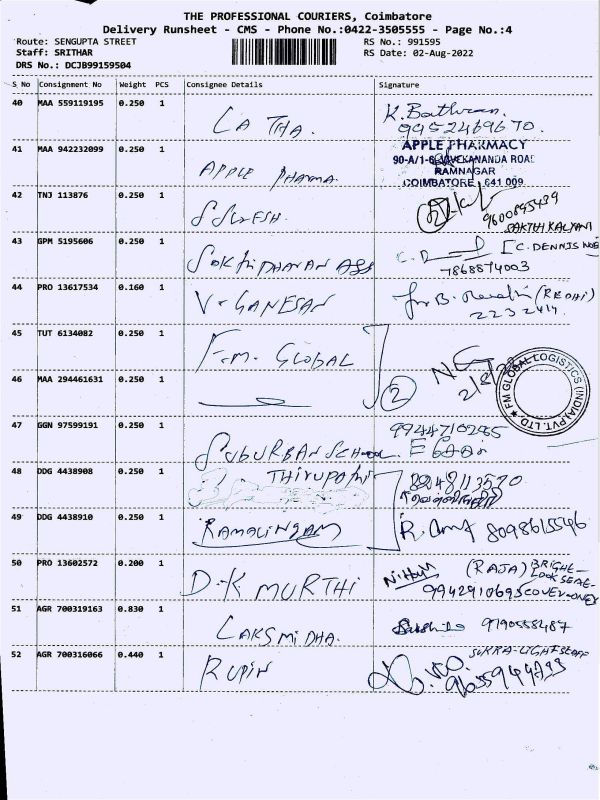 THE PROFESSIONAL COURIERS, Coimbatore
Delivery Runsheet - CMS - Phone No.:0422-3505555 - Page No.:4
Route: SENGUPTA STREET
RS No.: 991595
Staff: SRITHAR
RS Date: 02-Aug-2022
DRS No.: DCJB99159504
S No Consignment No Weight PCS Consignee Details Signature
40 MAA 559119195 0.250 1 LATHA. K. 9952469670.
41 MAA 942232099 0.250 1 APPLE Pharma. APPLE PHARMACY
90-A/1-6, VIVEKANANDA ROAD
RAMNAGAR
COIMBATORE 641 009
42 TNJ 113876 0.250 1 SURESH. 9600895439
SAKTHI KALYANI
43 GPM 5195606 0.250 1 C. DENNIS
7868874003
44 PRO 13617534 0.160 1 V. GANESAN for B. (REDHI)
2232414
45 TUT 6134082 0.250 1 F.M. GLOBAL
2/8/22
FM GLOBAL LOGISTICS (INDIA) PVT. LTD.
46 MAA 294461631 0.250 1 2
47 GGN 97599191 0.250 1 SUBURBAN School. 9944710285
48 DDG 4438908 0.250 1 THIRUPATHI
49 DDG 4438910 0.250 1 RAMALINGAM R. 8098615546
50 PRO 13602572 0.200 1 D.K MURTHI (RAJA) BRIGHT
9942910695
51 AGR 700319163 0.830 1 LAKSMIDHA. 9790558487
52 AGR 700316066 0.440 1 RUPIN